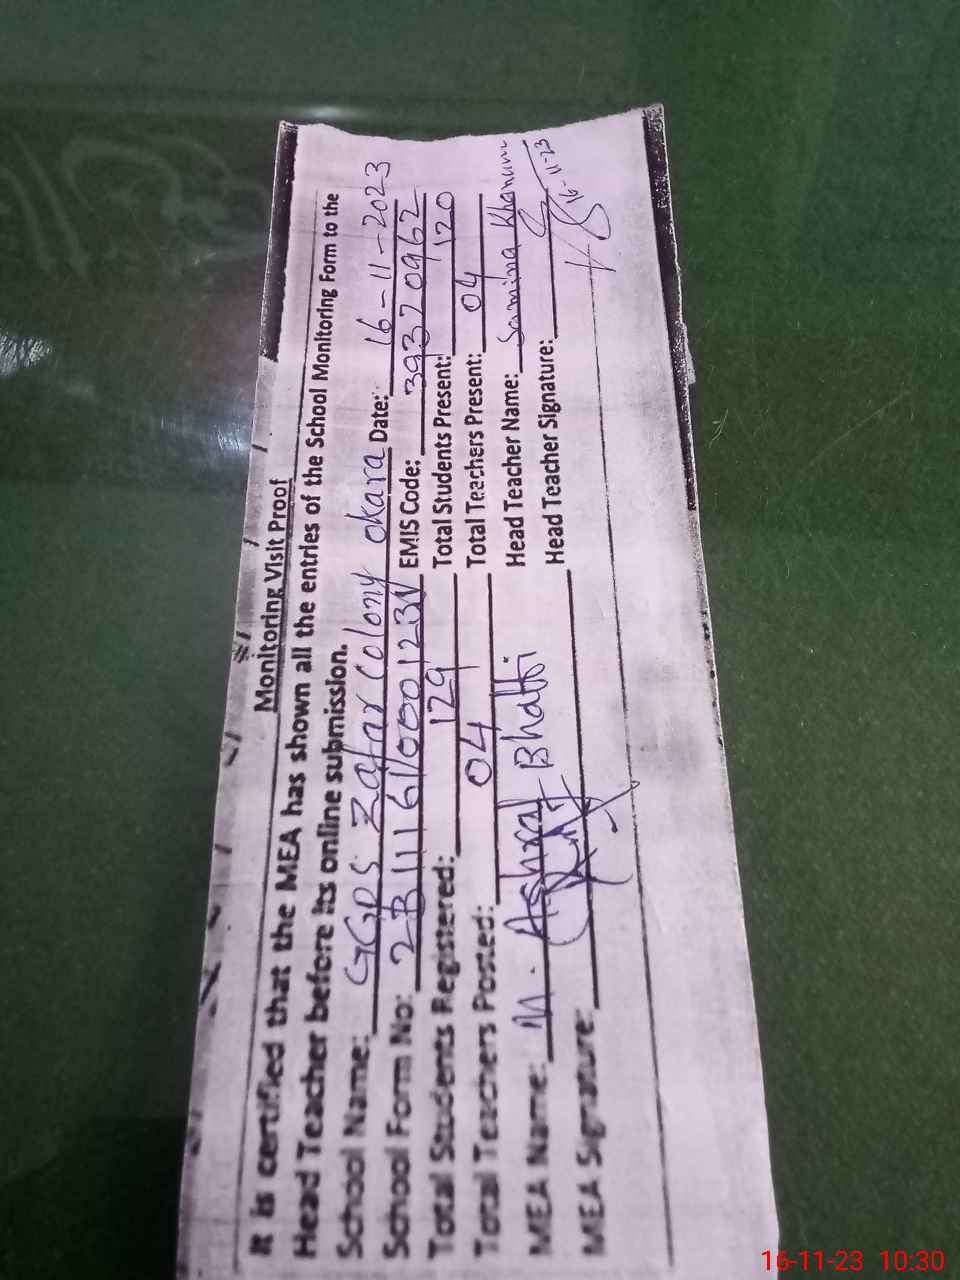 Monitoring Visit Proof
It is certified that the MEA has shown all the entries of the School Monitoring Form to the
Head Teacher before its online submission.
School Name: GGPS Zafar Colony okara Date: 16-11-2023
School Form No: 2B111611000123N EMIS Code: 39370962
Total Students Registered: 129 Total Students Present: 120
Total Teachers Posted: 04 Total Teachers Present: 04
MEA Name: M. Ashraf Bhatti Head Teacher Name: Samina Khanum
MEA Signature: Head Teacher Signature:
16-11-23
16-11-23 10:30